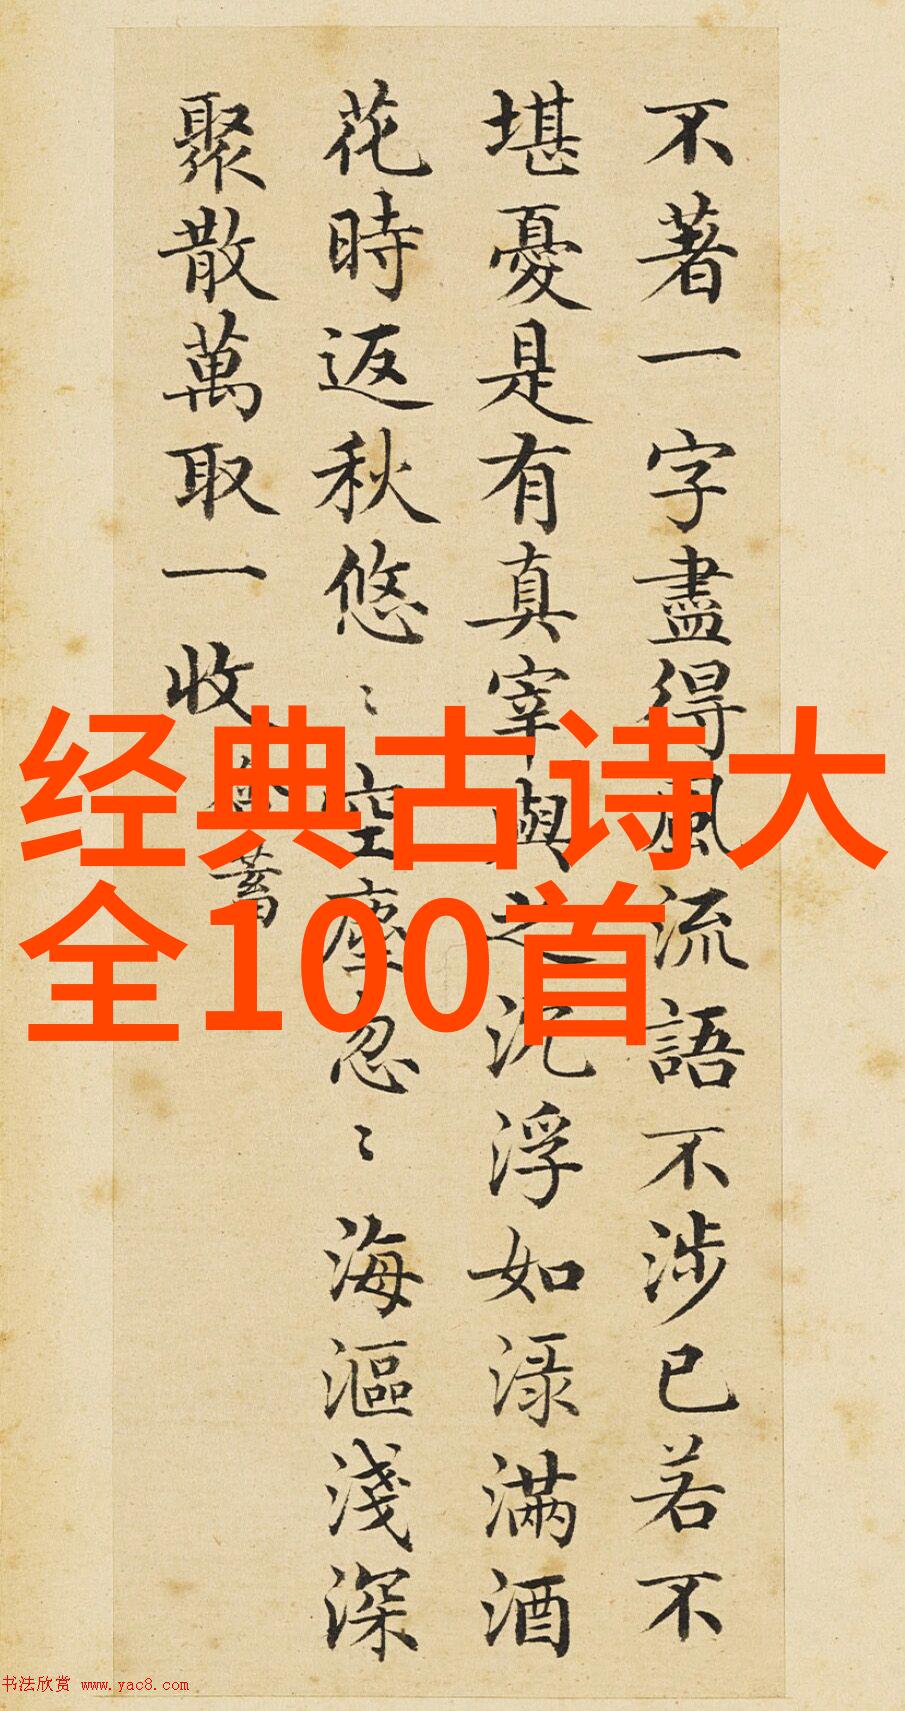 不著一字盡得風流語不涉已若不
堪憂是有真宰與之沉浮如渌滿酒
花時返秋悠〻空塵忽〻海漚淺深
聚散萬取一收
含蓄
经典古诗大
全100首
书法欣赏 www.yac8.com